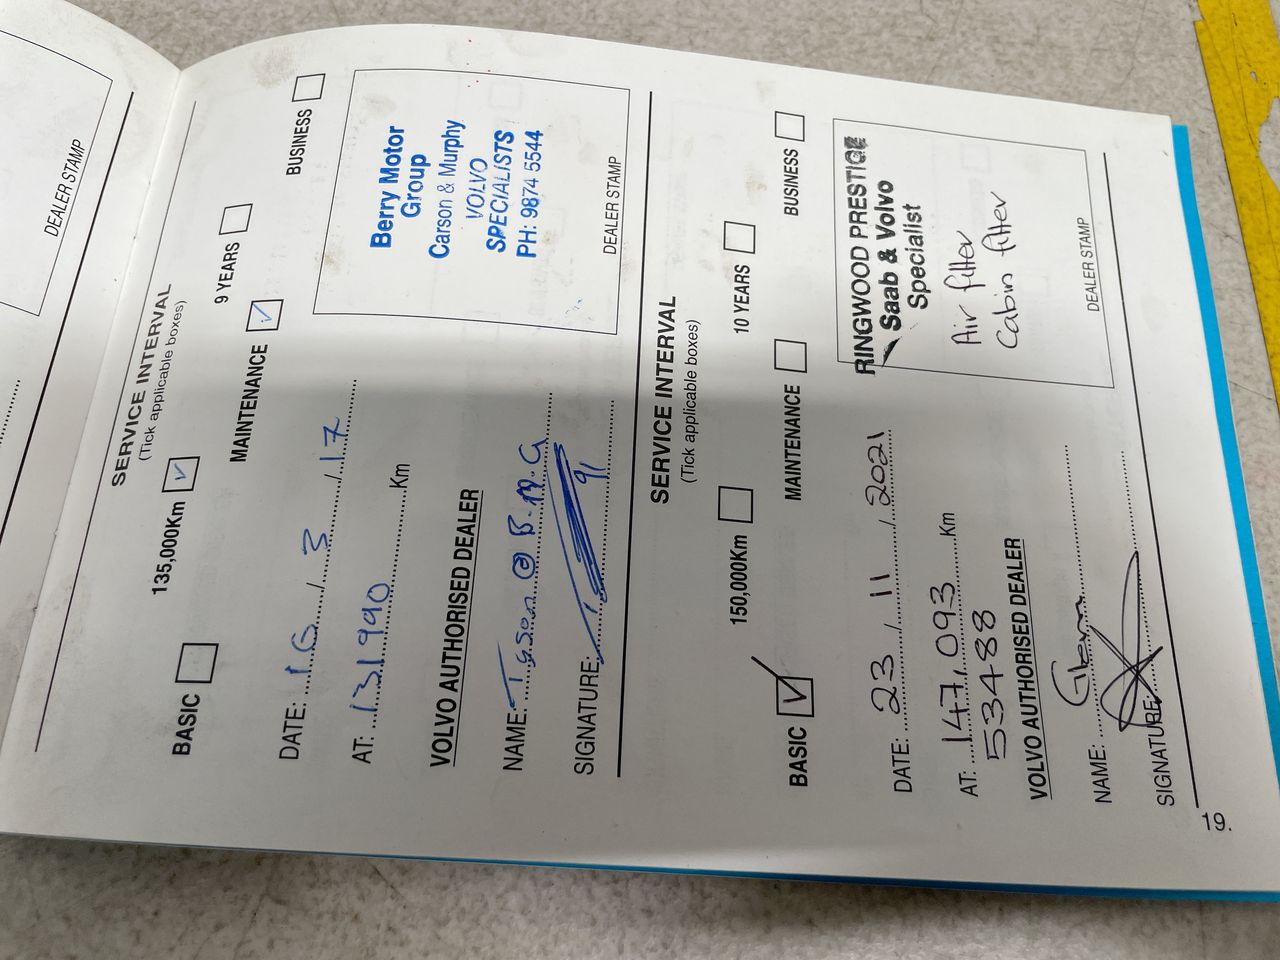 DEALER STAMP
SERVICE INTERVAL
(Tick applicable boxes)
135,000Km 9 YEARS
BASIC MAINTENANCE BUSINESS
DATE: 16 / 3 / 17
AT: 131990 Km
VOLVO AUTHORISED DEALER
NAME: @ B.M.G
SIGNATURE:
Berry Motor
Group
Carson & Murphy
VOLVO
SPECIALISTS
PH: 9874 5544
DEALER STAMP
SERVICE INTERVAL
(Tick applicable boxes)
150,000Km 10 YEARS
BASIC MAINTENANCE BUSINESS
DATE: 23 / 11 / 2021
AT: 147,093 Km
53488
VOLVO AUTHORISED DEALER
NAME: Glenn
SIGNATURE:
RINGWOOD PRESTIGE
Saab & Volvo
Specialist
Air filter
Cabin filter
DEALER STAMP
19.